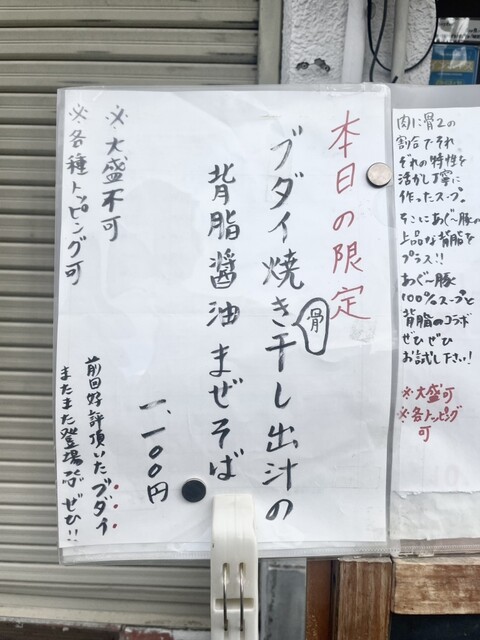 肉に骨2の
割合でそれ
ぞれの特性を
活かし丁寧に
作ったスープ。
そこにあぐ〜豚の
上品な背脂を
プラス!!
あぐ〜豚
100%スープと
背脂のコラボ
ぜひぜひ
お試し下さい!
※大盛可
※各トッピング
可
本日の限定
ブダイ焼き干し出汁の
骨
背脂醤油まぜそば
一、一〇〇円
※大盛不可
※各種トッピング可
前回好評頂いたブダイ
またまた登場です ぜひ!!